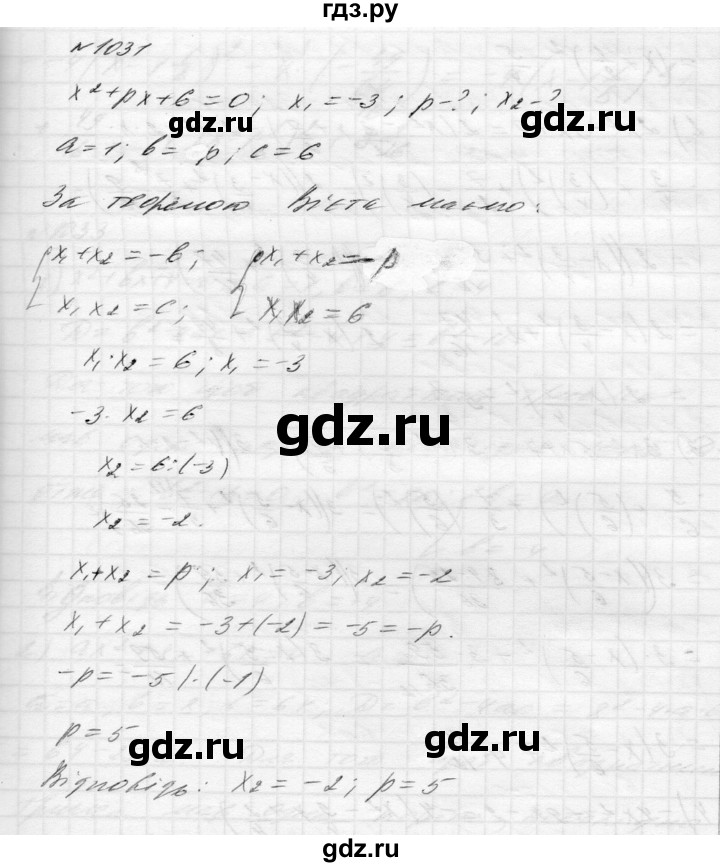 гдз.ру
№1031
x²+px+6=0; x₁=-3; p-?; x₂-?
gdz.ru
gdz.ru
a=1; b= p; c=6
За теремою Вієта маємо:
{x₁+x₂=-b; {x₁+x₂=-p
{x₁x₂=c; {x₁x₂=6
x₁·x₂=6; x₁=-3
-3·x₂=6
gdz.ru
x₂=6:(-3)
x₂=-2.
x₁+x₂=p; x₁=-3; x₂=-2
x₁+x₂=-3+(-2)=-5=-p.
-p=-5|·(-1)
p=5
gdz.ru
gdz.ru
Відповідь: x₂=-2; p=5
gdz.ru